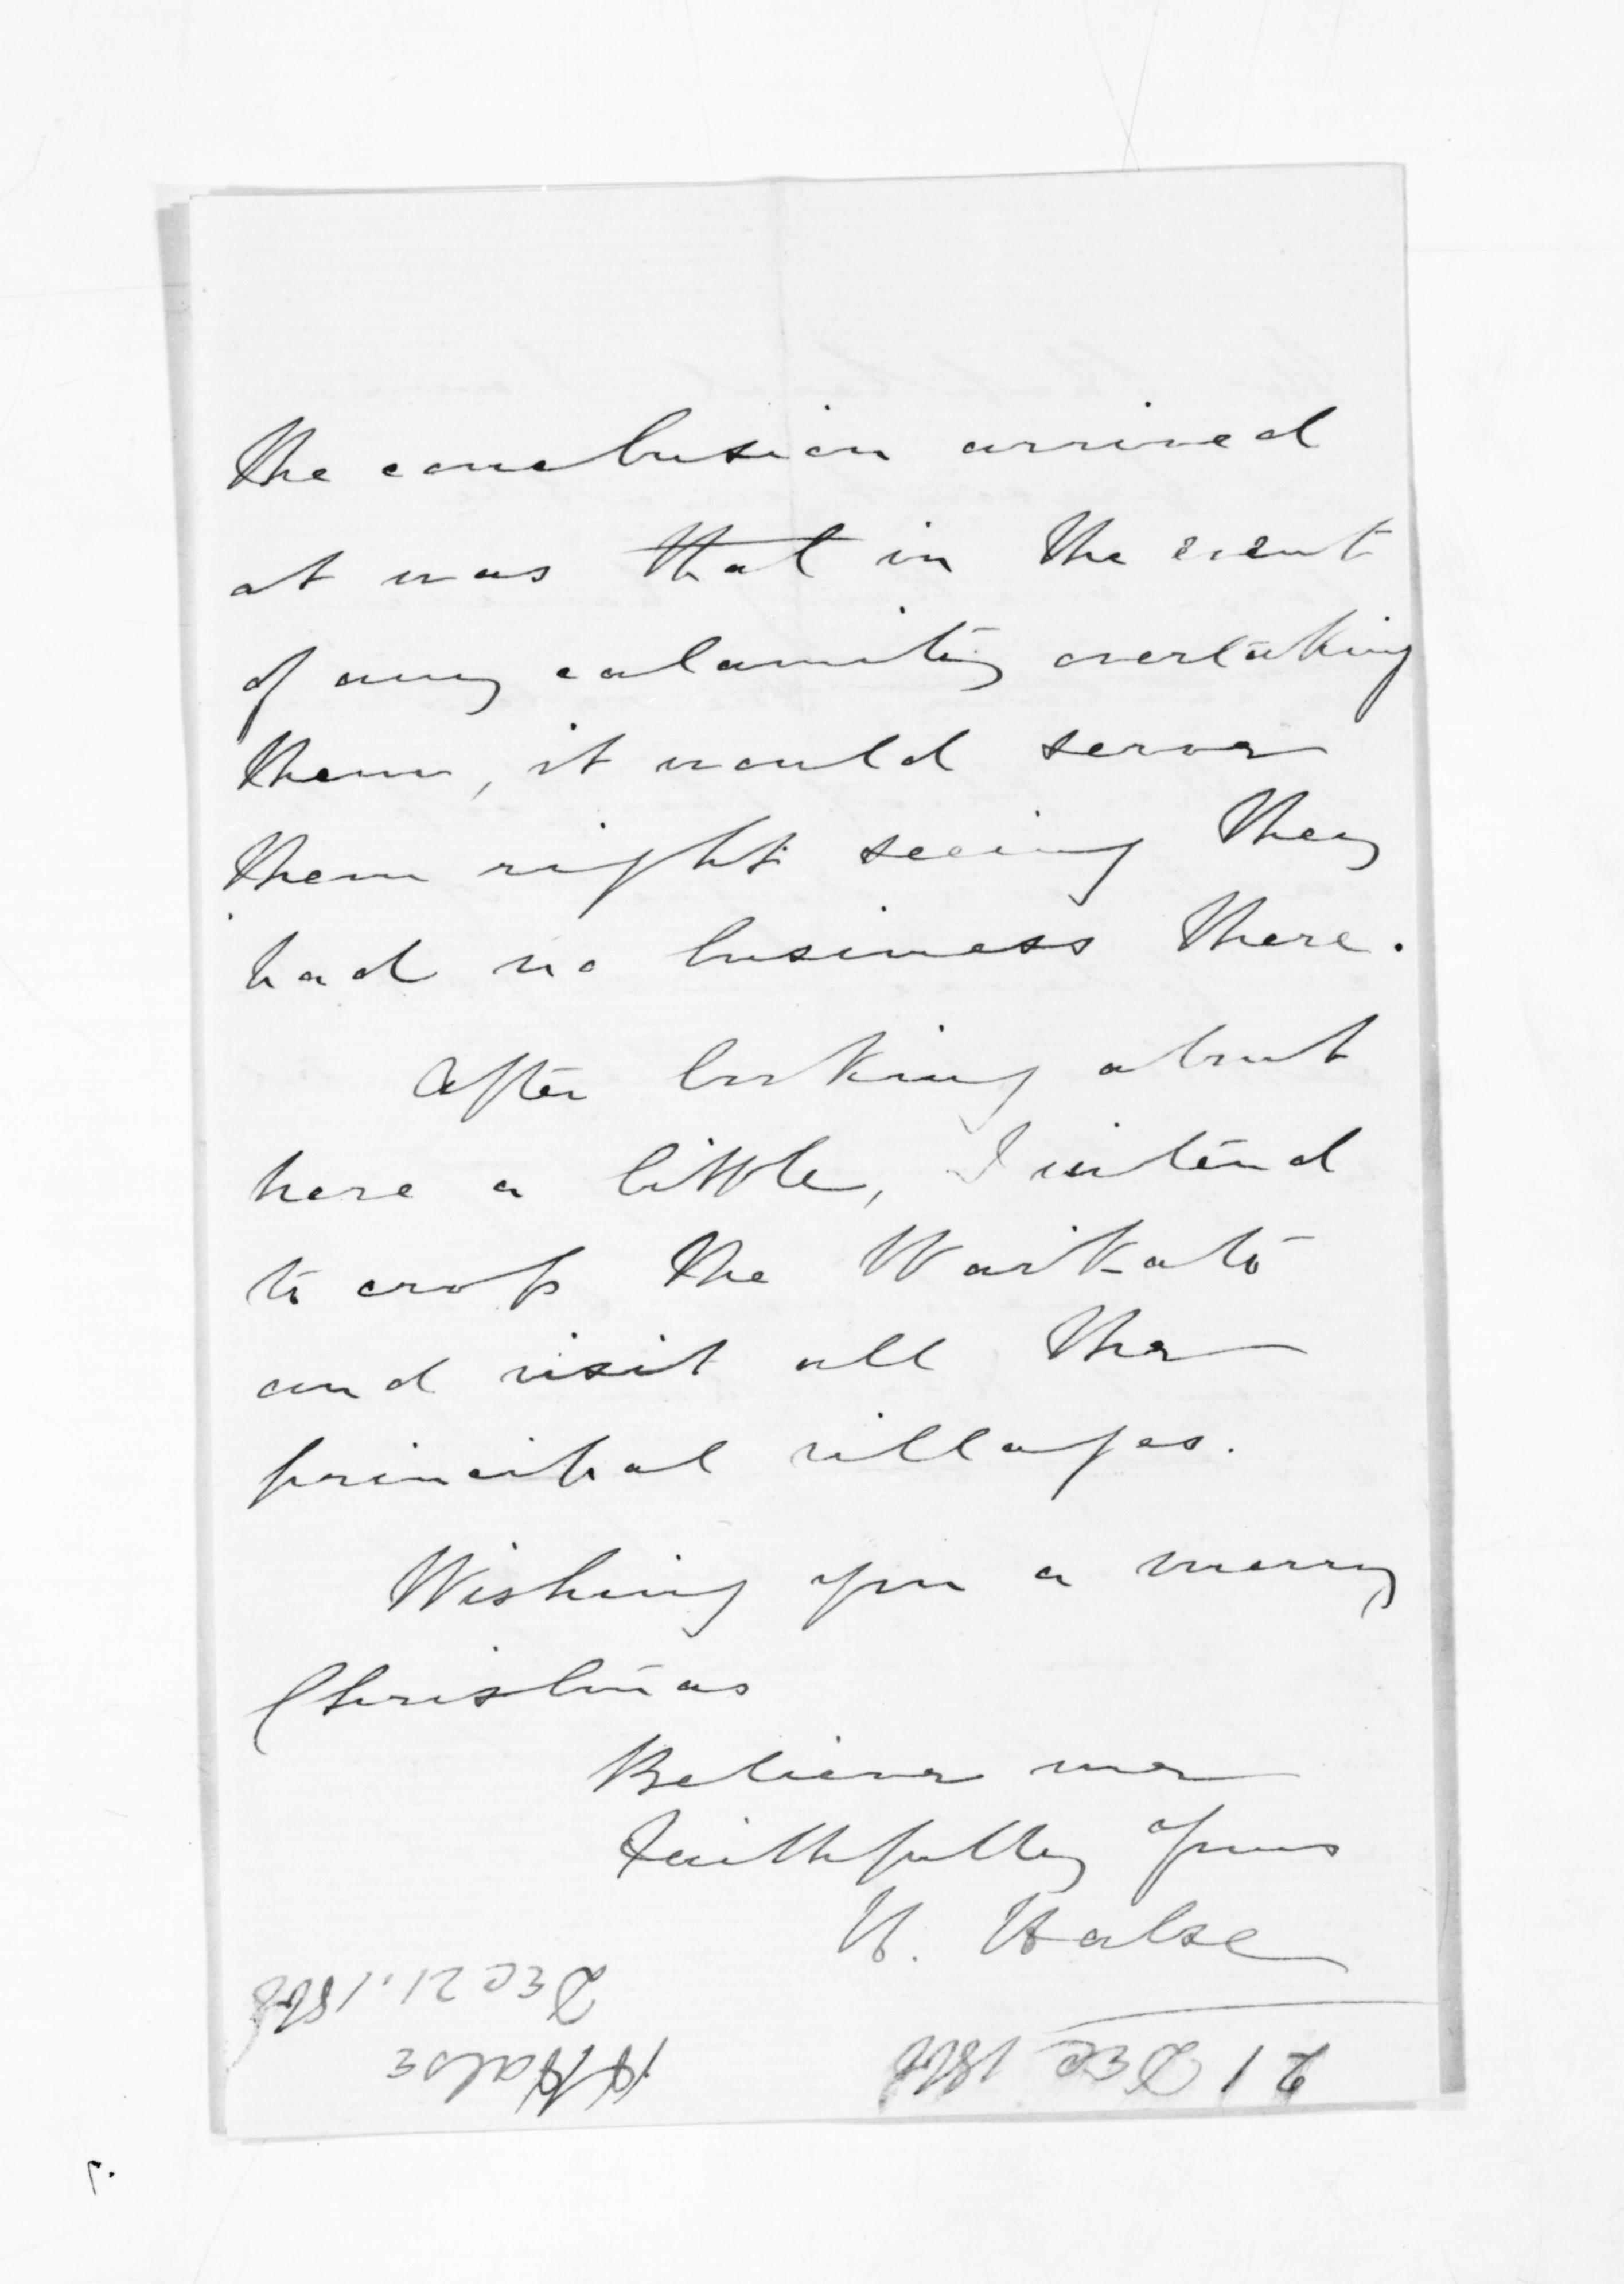 the conclusion arrived
at was that in the event
of any calamity overtaking
them, it would serve
them right seeing they
had no business there.
After looking about
here a little, I intend
to cross the Waikato
and visit all the
principal villages.
Wishing you a merry
Christmas
Believe me
Faithfully yours
H. Halse
21 Dec
H Halse
Dec 21.